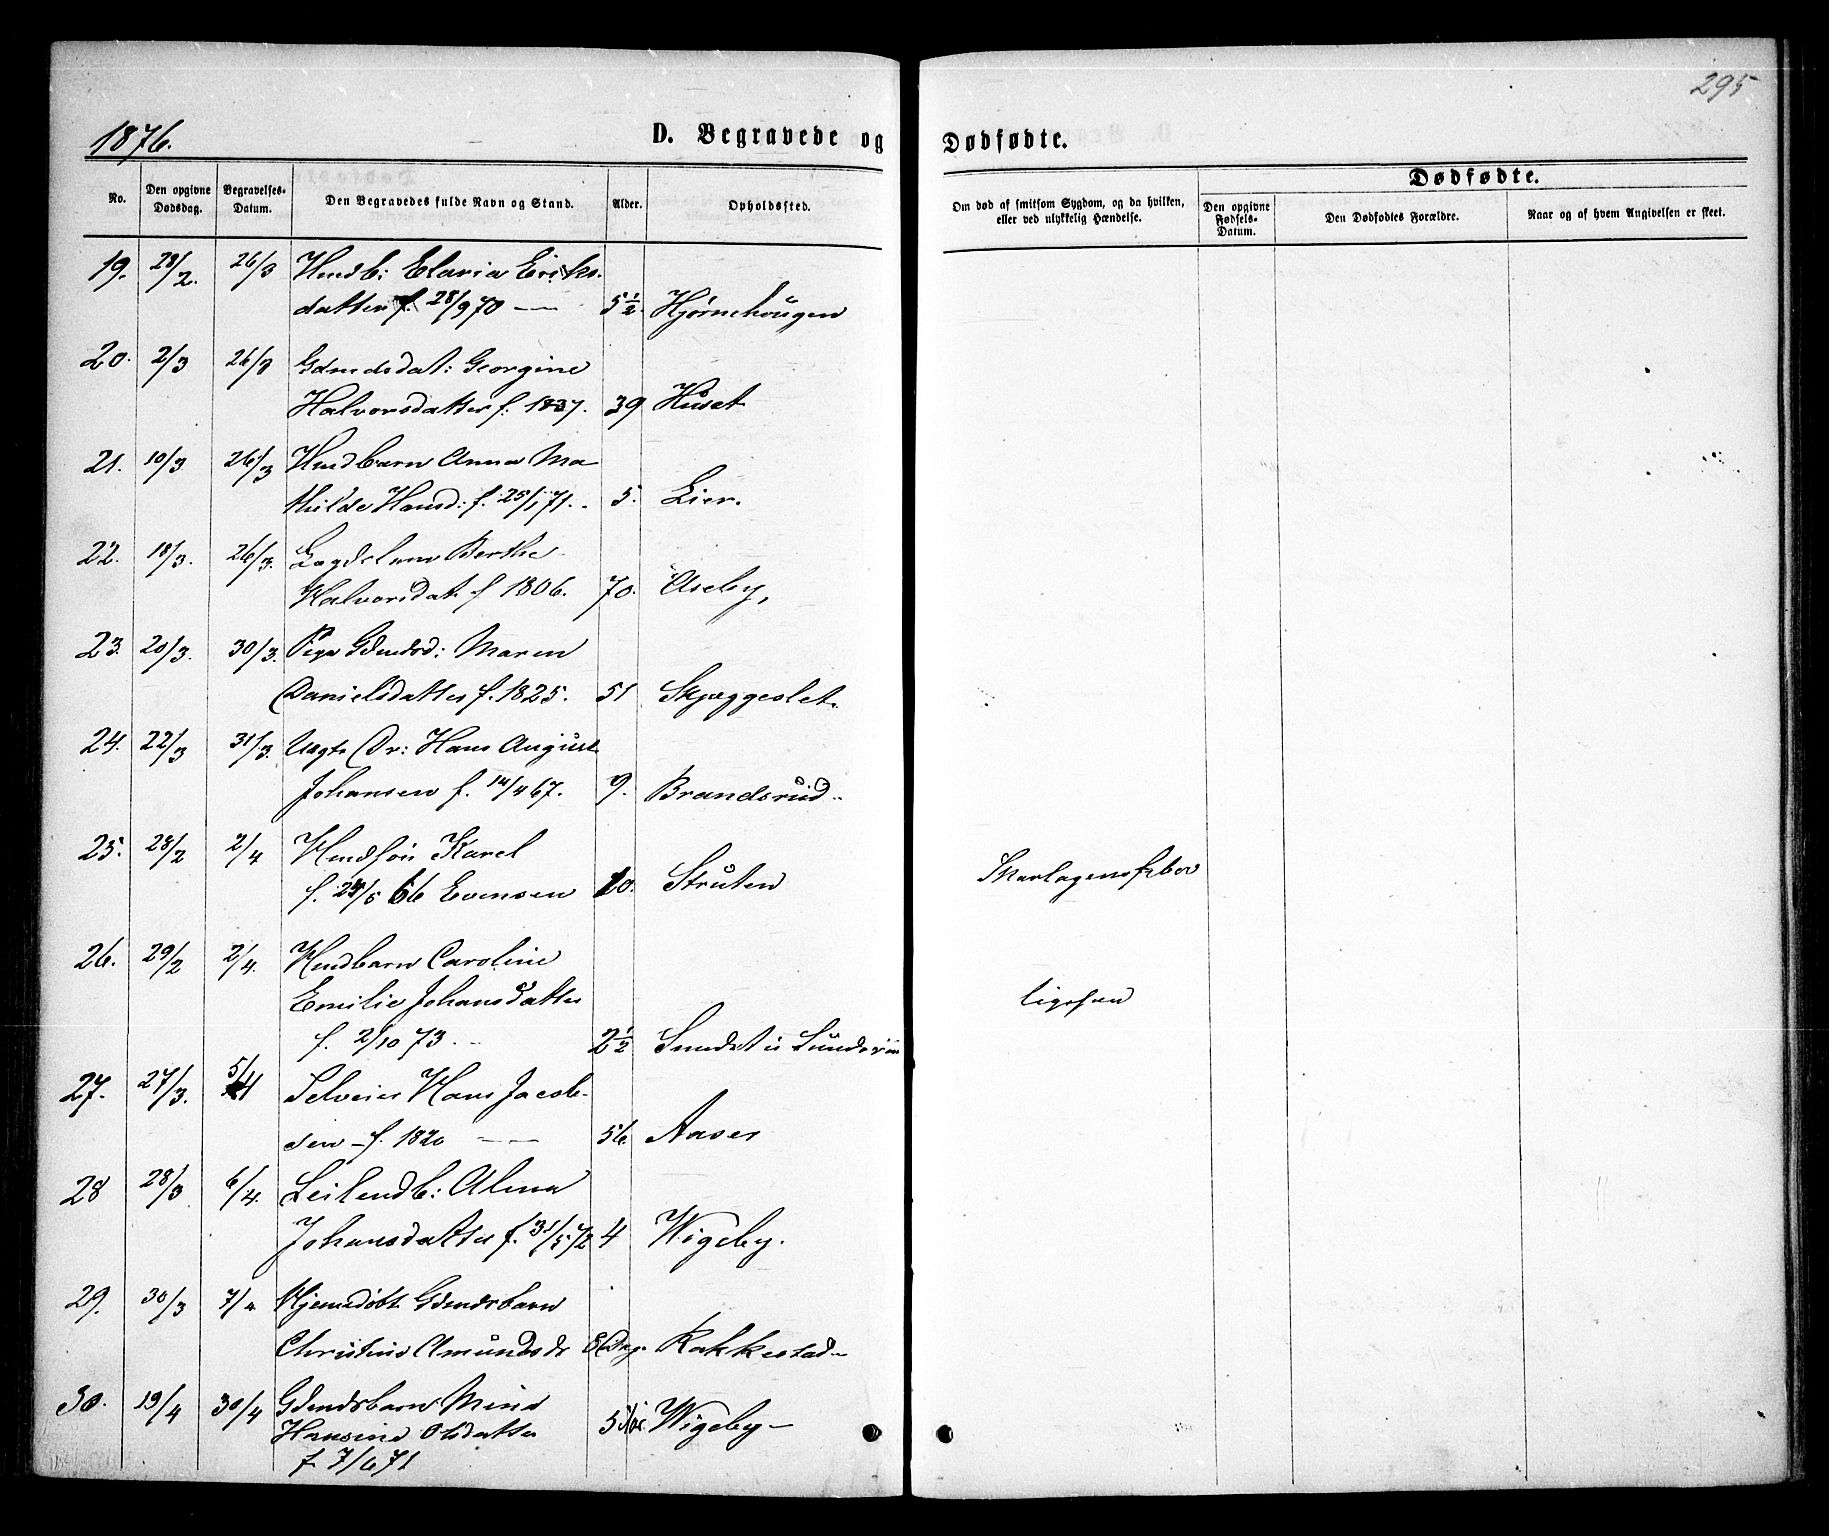 295
1876.
D. Begravede og Dødfødte.
No.
Den opgivne Dødsdag.
Begravelses-Datum.
Den Begravedes fulde Navn og Stand.
Alder.
Opholdssted.
Om død af smitsom Sygdom, og da hvilken, eller ved ulykkelig Hændelse.
Dødfødte.
Den opgivne Fødsels-Datum.
Den Dødfødtes Forældre.
Naar og af hvem Angivelsen er skeet.
19. 28/2. 26/3 Husmdb: Elavia Eriks-
datter f. 28/9 70 — 5½. Hjørnehougen
20. 2/3 26/3 Gdmdsdat: Georgine
Halvorsdatter f: 1837. 39 Huset
21. 10/3 26/3 Husmdbarn Anna Ma
thilde Hansd: f. 25/1 71. 5. Lier.
22. 18/3. 26/3. Lægdslem Berthe
Halvorsdat. f 1806. 70. Aseby,
23. 20/3. 30/3. Pige Gdmdsd: Maren
Danielsdatter f. 1825. 51 Skjæggeslet.
24. 22/3 31/3. Uægte Dr: Hans August
Johansen f. 14/4 67. 9. Brandsrud
25. 28/2 2/4 Husmdsøn Karel
f. 28/5 66 Evensen 10. Struten Skarlagensfeber
26. 29/2 2/4. Husmdbarn Caroline
Emilie Johansdatter ligesaa
f. 2/10 73. 2½ Sundet
27. 27/3. 5/4 Selveier Hans Jacob-
sen – f. 1820 — 56. Aaser
28 28/3 6/4. Leilendb: Alma
Johansdatter f. 31/5 72 4 Wigeby.
29. 30/3 7/4 Hjemedøbt Gdmdsbarn
Christine Amundsdr Dag. Rakkestad
30. 19/4 30/4 Gdmdsbarn Mina
Hansine Olsdatter 5 Wigeby –
f. 7/6 71